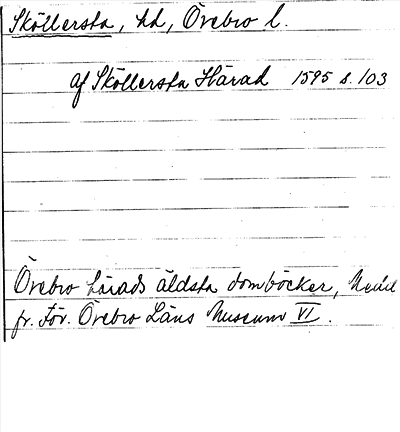 Sköllersta, hd, Örebro l.
af Sköllersta Härad 1595 s. 103
Örebro härads äldsta domböcker, Medd
fr. För. Örebro Läns Museum VI.